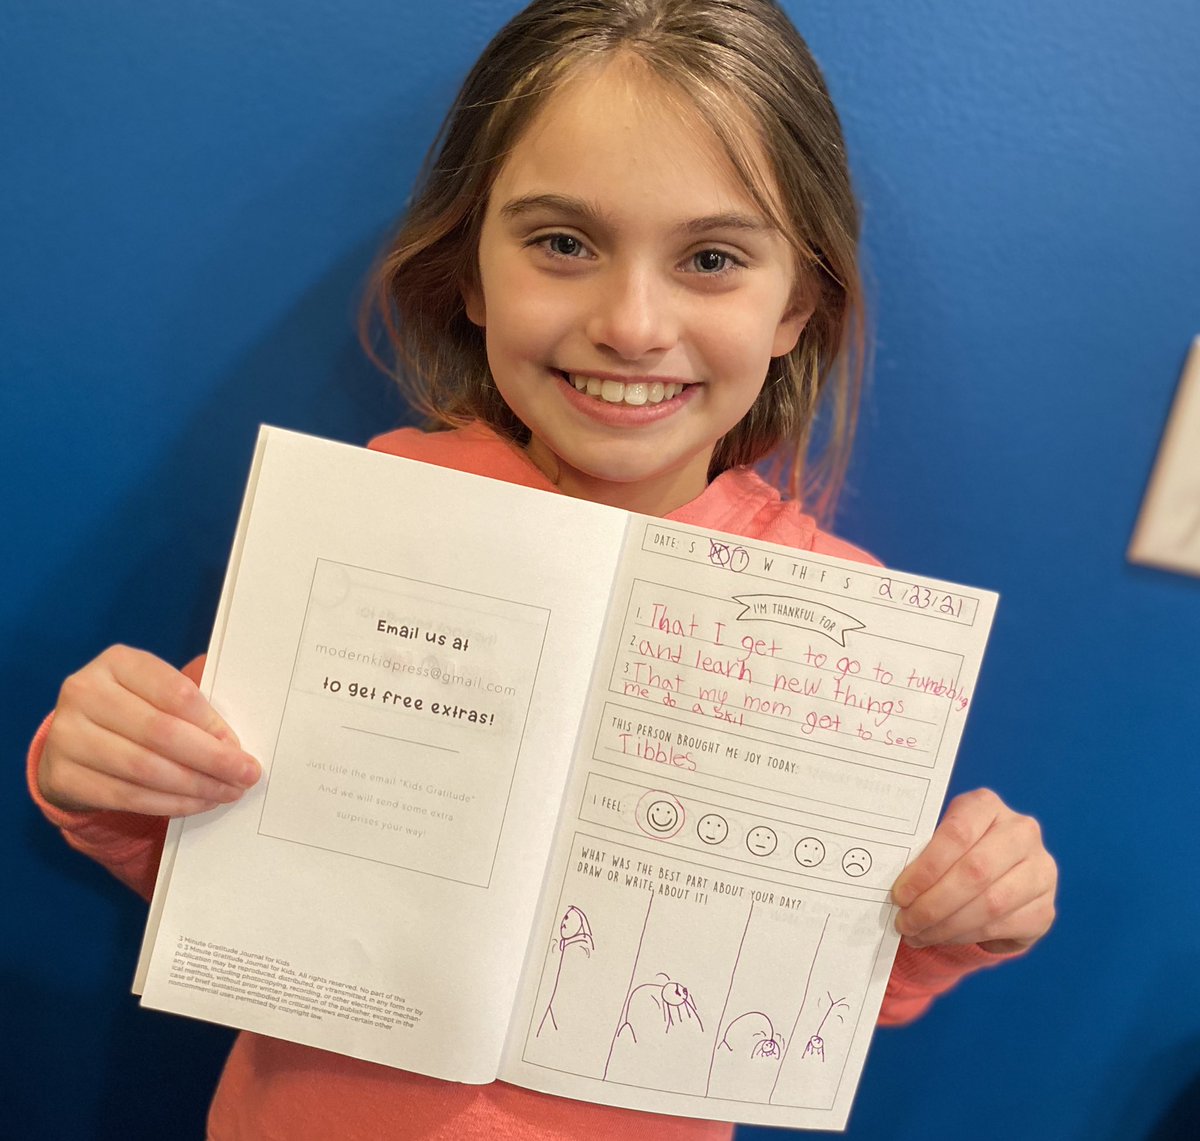 Email us at
modernkidpress@gmail.com
to get free extras!
Just title the email "Kids Gratitude"
And we will send some extra
surprises your way!
3 Minute Gratitude Journal for Kids
© 3 Minute Gratitude Journal for Kids. All rights reserved. No part of this
publication may be reproduced, distributed, or vtransmitted, in any form or by
any means, including photocopying, recording, or other electronic or mechan-
ical methods, without prior written permission of the publisher, except in the
case of brief quotations embodied in critical reviews and certain other
noncommercial uses permitted by copyright law.
DATE: S M T W TH F S 2/23/21
I'M THANKFUL FOR
1. That I get to go to tumbbling
2. and learn new things
3. That my mom got to see
me do a skil
THIS PERSON BROUGHT ME JOY TODAY:
Tibbles
I FEEL:
WHAT WAS THE BEST PART ABOUT YOUR DAY?
DRAW OR WRITE ABOUT IT!